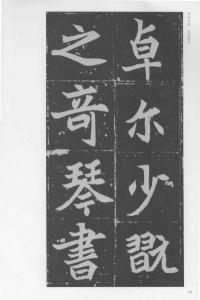 卓尔少翫
之奇琴書